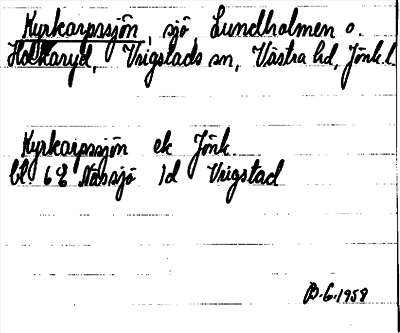 Kyrkarpssjön, sjö Lundholmen o.
Holkaryd, Vrigstads sn, Västra hd, Jönk.l.
Kyrkarpssjön ek Jönk.
bl. 68 Nässjö ld Vrigstad
B.G.1958